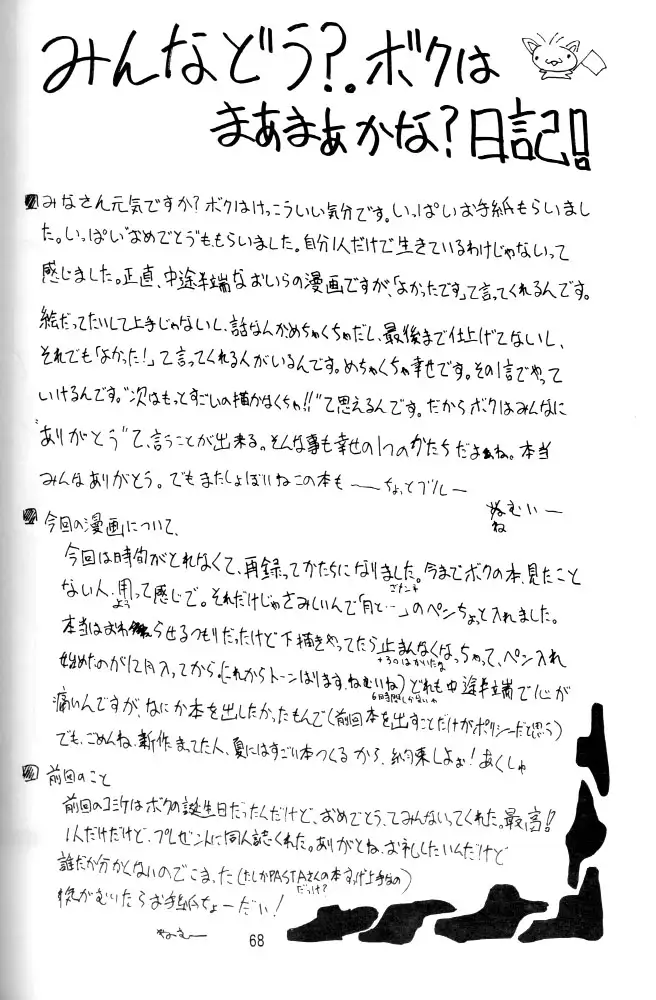 みんなどう?。ボクは
まあまあかな?日記!!
みなさん元気ですか?ボクはけっこういい気分です。いっぱいお手紙もらいまし
た。いっぱい"おめでとう"ももらいました。自分1人だけで生きているわけじゃないって
感じました。正直、中途半端なおいらの漫画ですが、「よかったです」って言ってくれるんです。
絵だってたいして上手じゃないし、話なんかめちゃくちゃだし、最後まで仕上げてないし、
それでも「よかった!」って言ってくれる人がいるんです。めちゃくちゃ幸せです。その1言でやって
いけるんです。"次はもっとすごいの描かなくちゃ!!"って思えるんです。だからボクはみんなに
"ありがとう"って、言うことが出来る。そんな事も幸せの1つのかたちだよぉね。本当
みんなありがとう。でもまたしょぼいねこの本も ― ちょっとブルー
ねむいー
ね
今回の漫画について、
今回は時間がとれなくて、再録ってかたちになりました。今までボクの本、見たこと
ない人、用って感じで。それだけじゃさみしいんで「月と…」のペンちょっと入れました。
よう
本当はおわらせるつもりだったけど下描きやってたら止まんなくなっちゃって、ペン入れ
+30はかいたな
始めたのが12月入ってから。(これからトーンはります、ねむいね)どれも中途半端で心が
痛いんですが、なにか本を出したかったもんで(前回本を出すことだけがポリシーだと思う)
でも、ごめんね、新作まってた人、夏にはすごい本つくるから、約束しよぉ!あくしゅ
前回のこと
前回のコミケはボクの誕生日だったんだけど、おめでとう、てみんないってくれた。最高!!
1人だけだけど、プレゼントに同人誌くれた。ありがとね、お礼したいんだけど
誰だか分かんないのでこまった(たしかPASTAさんの本
だっけ?
気がむいたらお手紙ちょーだい!
68